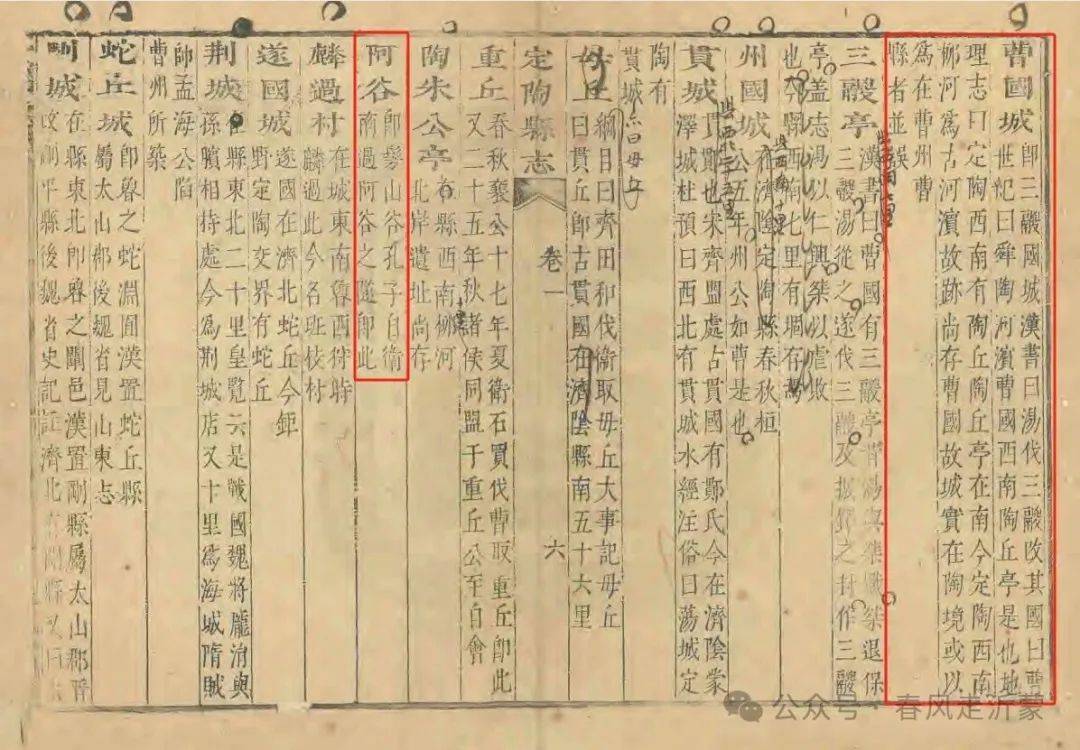 曹國城即三鬷國城漢書曰湯伐三鬷改其國曰曹
世紀曰舜陶河濱曹國西南陶丘亭是也地
理志曰定陶西南有陶丘陶丘亭在南今定陶西南
郍河爲古河濱故跡尚存曹國故城實在陶境或以
爲在曹州曹
縣者並誤
三鬷亭漢書曰曹國有三鬷亭昔湯與桀戰桀退保
三鬷湯從之遂伐三鬷及之封作三鬷
亭盖志湯以仁興桀以虐敗
也今縣西南七里有堌存焉
州國城在濟陰定陶縣春秋桓
公五年州公如曹是也
貫城貫鄮也宋齊盟處古貫國有鄮氏今在濟陰蒙
澤城杜預曰西北有貫城水經注俗曰薄城定
陶有
貫城亦曰毋丘
毋丘綱目曰齊田和伐衛取毋丘大事記毋丘
曰貫丘即古貫國在濟陰縣南五十六里
定陶縣志 卷一 六
重丘春秋襄公十七年夏衛石買伐曹取重丘即此
又二十五年秋諸侯同盟于重丘公至自會
陶朱公亭在縣西南郍河
北岸遺址尚存
阿谷即髣山谷孔子自衛
南過阿谷之隧即此
麟過村在城東南魯西狩時
麟過此今名班枝村
遂國城遂國在濟北蛇丘今鉅
野定陶交界有蛇丘
荆城在縣東北二十里皇覽云是戰國魏將龐涓與
孫臏相持處今爲荆城店又十里爲海城隋賊
帥孟海公陷
曹州所築
蛇丘城即魯之蛇淵囿漢置蛇丘縣
屬太山郡後魏省見山東志
剛城在縣東北即魯之闡邑漢置剛縣屬太山郡晉
改剛平縣後魏省史記註濟北有剛縣又曰
公众号·春风走沂蒙